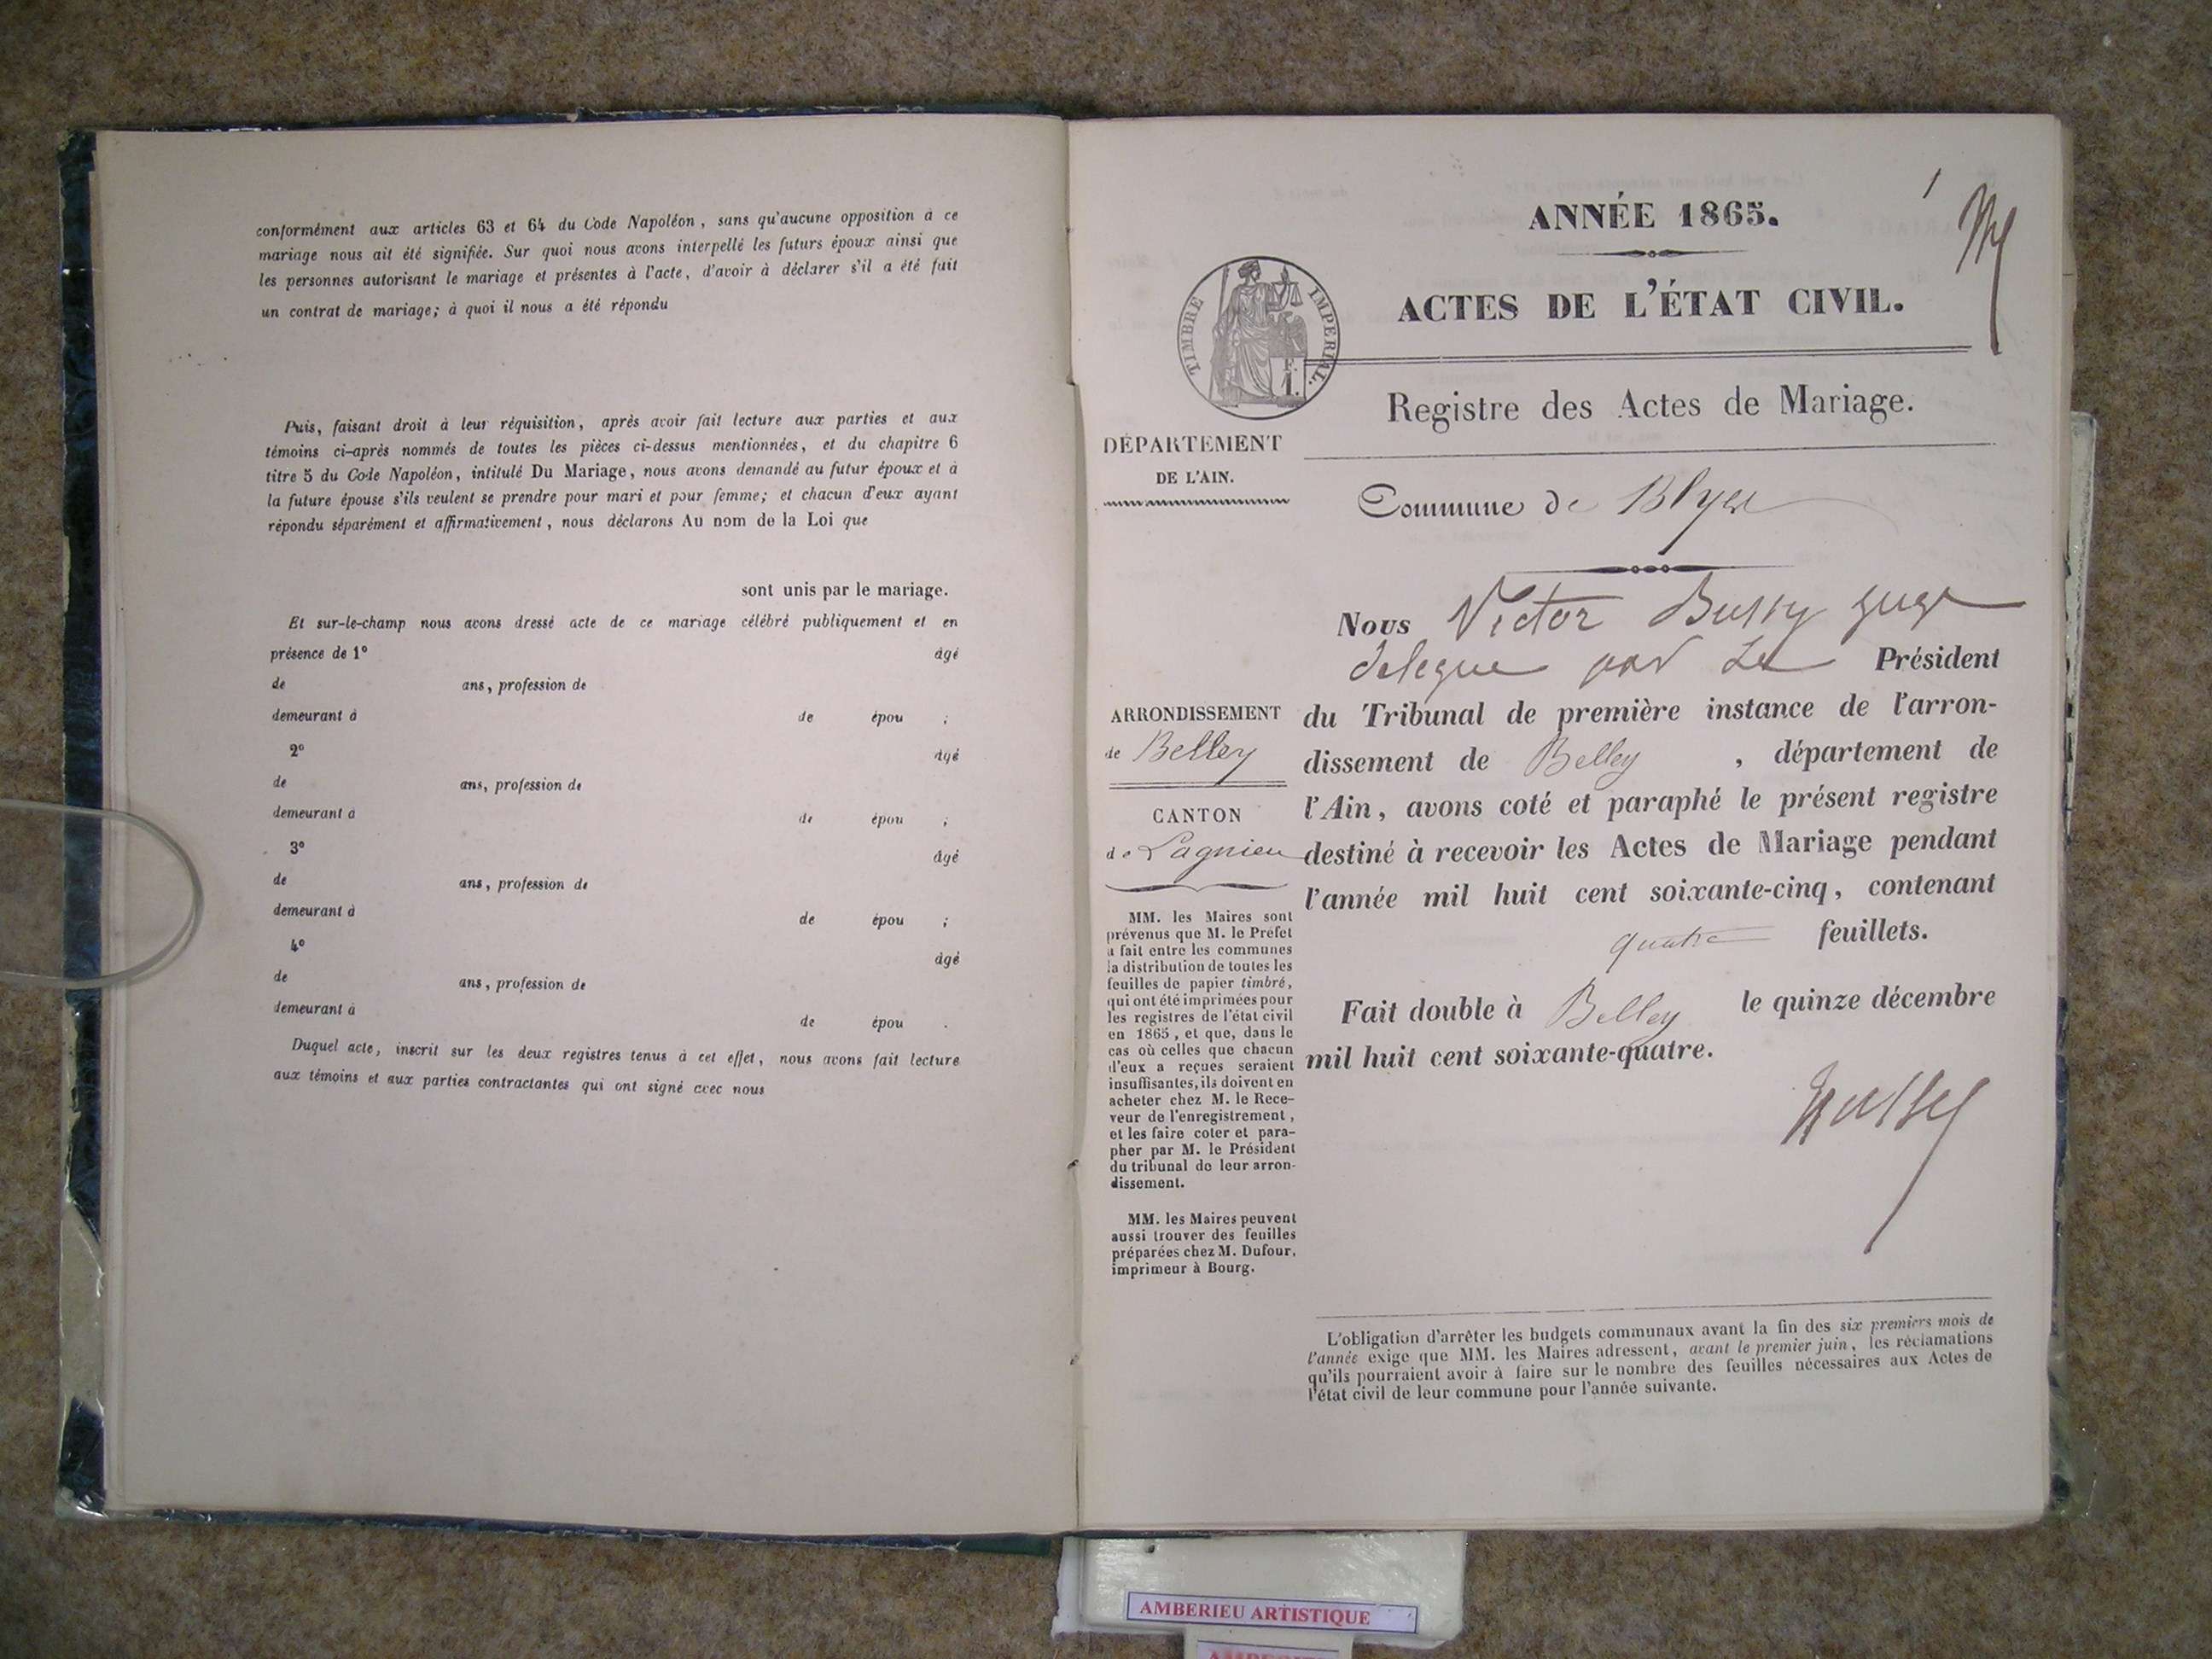 conformément aux articles 63 et 64 du Code Napoléon, sans qu'aucune opposition à ce
mariage nous ait été signifiée. Sur quoi nous avons interpellé les futurs époux ainsi que
les personnes autorisant le mariage et présentes à l'acte, d'avoir à déclarer s'il a été fait
un contrat de mariage; à quoi il nous a été répondu
Puis, faisant droit à leur réquisition, après avoir fait lecture aux parties et aux
témoins ci-après nommés de toutes les pièces ci-dessus mentionnées, et du chapitre 6
titre 5 du Code Napoléon, intitulé Du Mariage, nous avons demandé au futur époux et à
la future épouse s'ils veulent se prendre pour mari et pour femme; et chacun d'eux ayant
répondu séparément et affirmativement, nous déclarons Au nom de la Loi que
sont unis par le mariage.
Et sur-le-champ nous avons dressé acte de ce mariage célébré publiquement et en
présence de 1° âgé
de ans, profession de
demeurant à de épou ;
2° âgé
de ans, profession de
demeurant à de épou ;
3° âgé
de ans, profession de
demeurant à de épou ;
4° âgé
de ans, profession de
demeurant à de épou .
Duquel acte, inscrit sur les deux registres tenus à cet effet, nous avons fait lecture
aux témoins et aux parties contractantes qui ont signé avec nous
ANNÉE 1865.
ACTES DE L'ÉTAT CIVIL.
TIMBRE IMPERIAL.
F.
1.
Registre des Actes de Mariage.
DÉPARTEMENT
DE L'AIN.
Commune de Blyes
ARRONDISSEMENT
de Belley
CANTON
de Lagnieu
MM. les Maires sont
prévenus que M. le Préfet
a fait entre les communes
la distribution de toutes les
feuilles de papier timbré,
qui ont été imprimées pour
les registres de l'état civil
en 1865, et que, dans le
cas où celles que chacun
d'eux a reçues seraient
insuffisantes, ils doivent en
acheter chez M. le Rece-
veur de l'enregistrement,
et les faire coter et para-
pher par M. le Président
du tribunal de leur arron-
dissement.
MM. les Maires peuvent
aussi trouver des feuilles
préparées chez M. Dufour,
imprimeur à Bourg.
Nous Victor Bussy juge
delegue par Le Président
du Tribunal de première instance de l'arron-
dissement de Belley , département de
l'Ain, avons coté et paraphé le présent registre
destiné à recevoir les Actes de Mariage pendant
l'année mil huit cent soixante-cinq, contenant
quatre feuillets.
Fait double à Belley le quinze décembre
mil huit cent soixante-quatre.
Bussy
L'obligation d'arrêter les budgets communaux avant la fin des six premiers mois de
l'année exige que MM. les Maires adressent, avant le premier juin, les réclamations
qu'ils pourraient avoir à faire sur le nombre des feuilles nécessaires aux Actes de
l'état civil de leur commune pour l'année suivante.
AMBERIEU ARTISTIQUE